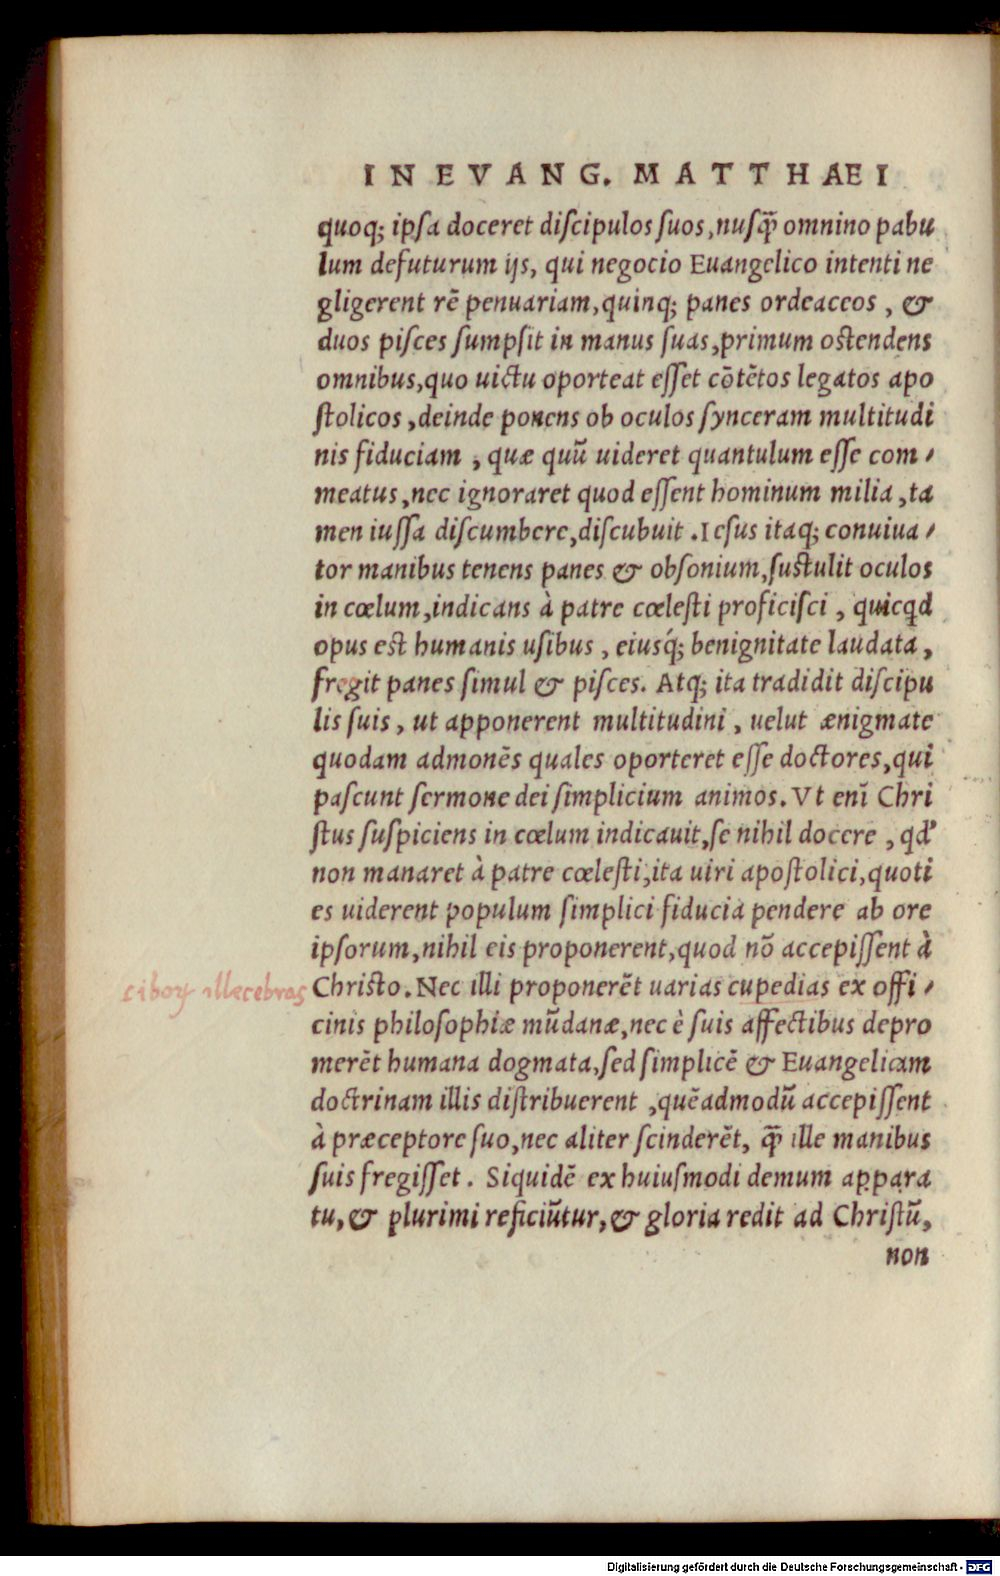 IN EVANG. MATTHAEI
quoq; ipſa doceret diſcipulos ſuos, nuſq̃ omnino pabu
lum defuturum ijs, qui negocio Euangelico intenti ne
gligerent rẽ penuariam, quinq; panes ordeaceos, &
duos piſces ſumpſit in manus ſuas, primum oſtendens
omnibus, quo uictu oporteat eſſet cõtẽtos legatos apo
ſtolicos, deinde ponens ob oculos ſynceram multitudi
nis fiduciam, quæ quũ uideret quantulum eſſe com⸗
meatus, nec ignoraret quod eſſent hominum milia, ta
men iuſſa diſcumbere, diſcubuit. Ieſus itaq; conuiua⸗
tor manibus tenens panes & obſonium, ſuſtulit oculos
in cœlum, indicans à patre cœleſti proficiſci, quicqd
opus eſt humanis uſibus, eiusq́; benignitate laudata,
fregit panes ſimul & piſces. Atq; ita tradidit diſcipu
lis ſuis, ut apponerent multitudini, uelut ænigmate
quodam admonẽs quales oporteret eſſe doctores, qui
paſcunt ſermone dei ſimplicium animos. Vt enĩ Chri
ſtus ſuſpiciens in cœlum indicauit, ſe nihil docere, qd'
non manaret à patre cœleſti, ita uiri apoſtolici, quoti
es uiderent populum ſimplici fiducia pendere ab ore
ipſorum, nihil eis proponerent, quod nõ accepiſſent à
ciboꝝ illecebras
Chriſto. Nec illi proponerẽt uarias cupedias ex offi⸗
cinis philoſophiæ mũdanæ, nec è ſuis affectibus depro
merẽt humana dogmata, ſed ſimplicẽ & Euangelicam
doctrinam illis diſtribuerent, quẽadmodũ accepiſſent
à præceptore ſuo, nec aliter ſcinderẽt, q̃ ille manibus
ſuis fregiſſet. Siquidẽ ex huiuſmodi demum appara
tu, & plurimi reficiũtur, & gloria redit ad Chriſtũ,
non
Digitalisierung gefördert durch die Deutsche Forschungsgemeinschaft - DFG